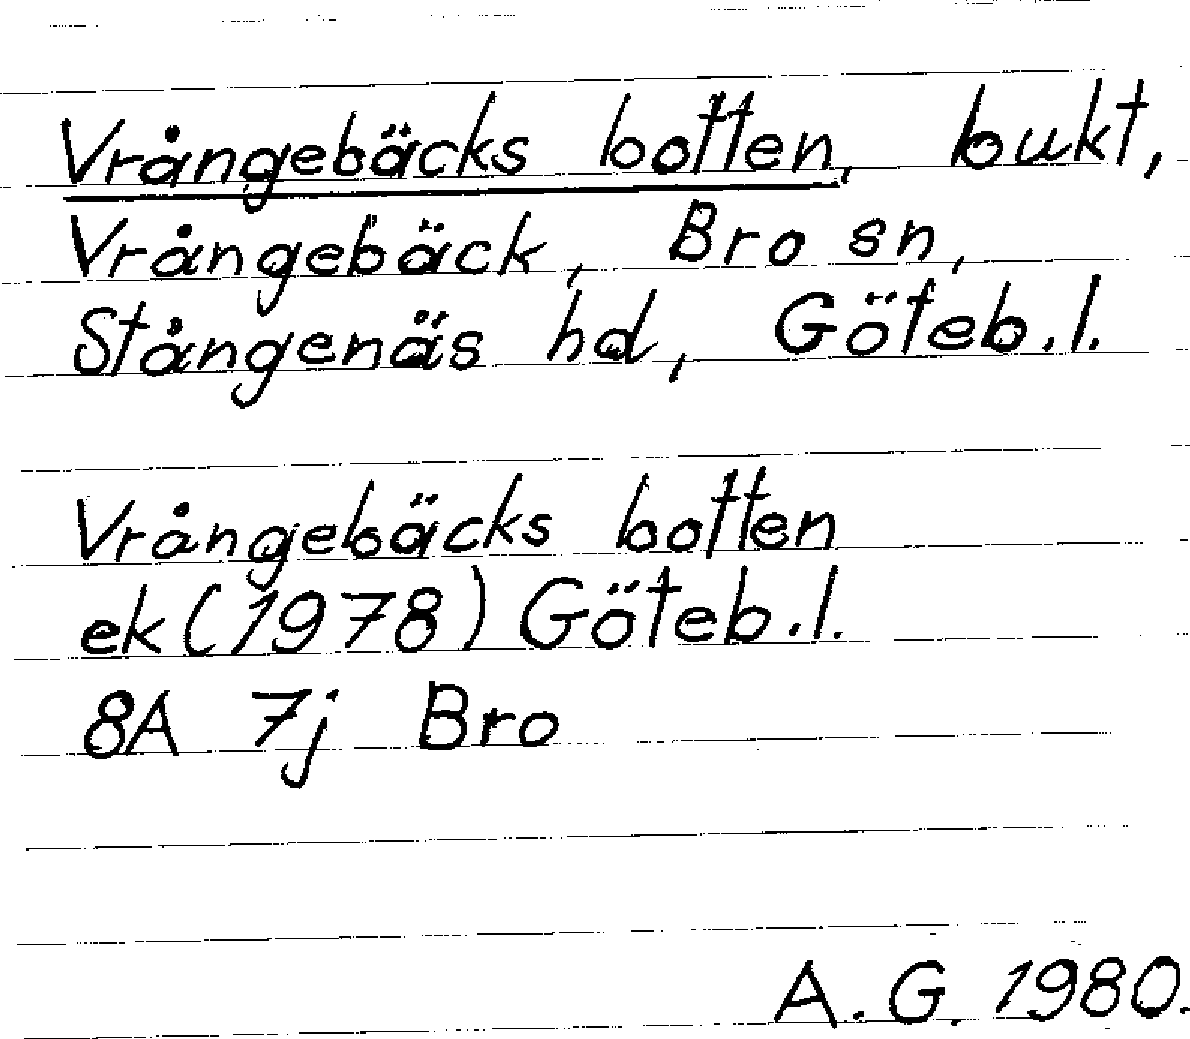 Vrångebäcks botten, bukt,
Vrångebäck, Bro sn,
Stångenäs hd, Göteb.l.
Vrångebäcks botten
ek (1978) Göteb.l.
8A 7j Bro
A.G. 1980.